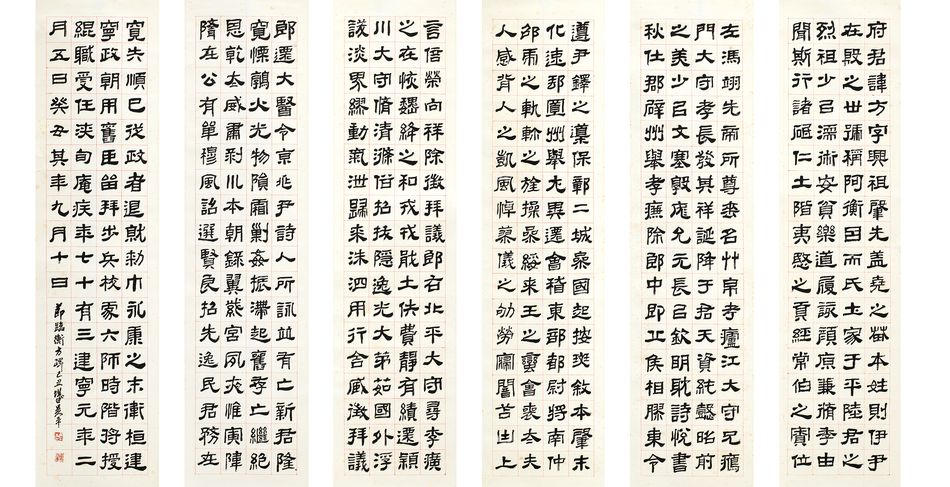 府君諱方字興祖肇先蓋堯之苗本姓則伊尹
在殷之世號稱阿衡因而氏土家于平陸君之
烈祖少㠯濡術安貧樂道履該顏原兼脩季由
聞斯行諸砥仁土階夷愍之貢經常伯之寮位
左馮翊先帝所尊垂名竹帛考廬江大守兄鴈
門大守孝長發其祥誕降于君天資純懿昭前
之美少㠯文塞敦庬允元長㠯欽明耽詩悅書
秋仕郡辟州舉孝廉除郎中即丘侯相膠東令
遵尹鐸之遵保鄣二城參國起按斑敘本肇末
化速郵置州舉尤異遷會稽東部都尉將南仲
邵虎之軌軫之旌操參綏來王之蠻會喪太夫
人感背人之凱風悼蓼儀之劬勞寢闇苫凷上
言倍榮向祥除徵拜議郎右北平大守尋李廣
之在恢魏絳之和戎戎戢土佚費靜有績遷穎
川大守脩清滌俗招拔隱逸光大茅茹國外浮
議淡界繆動氣泄歸來洙泗用行舍臧徵拜議
郎遷大醫令京兆尹詩人所詠並有亡新君隆
寬慄鶉火光物隕霜剿姦振滯起舊存亡繼絕
恩乾太威肅剝川本朝錄翼戴宮夙夜惟寅褘
隋在公有單穆風詔選賢良招先逸民君務在
寬失順已從政者退就勑巾永康之末衛桓建
寧政朝用舊臣留拜步兵校尉六師時階將授
緄職受任浹旬庵疾年七十有三建寧元年二
月五日癸丑其年九月十日
節臨衡方碑己丑